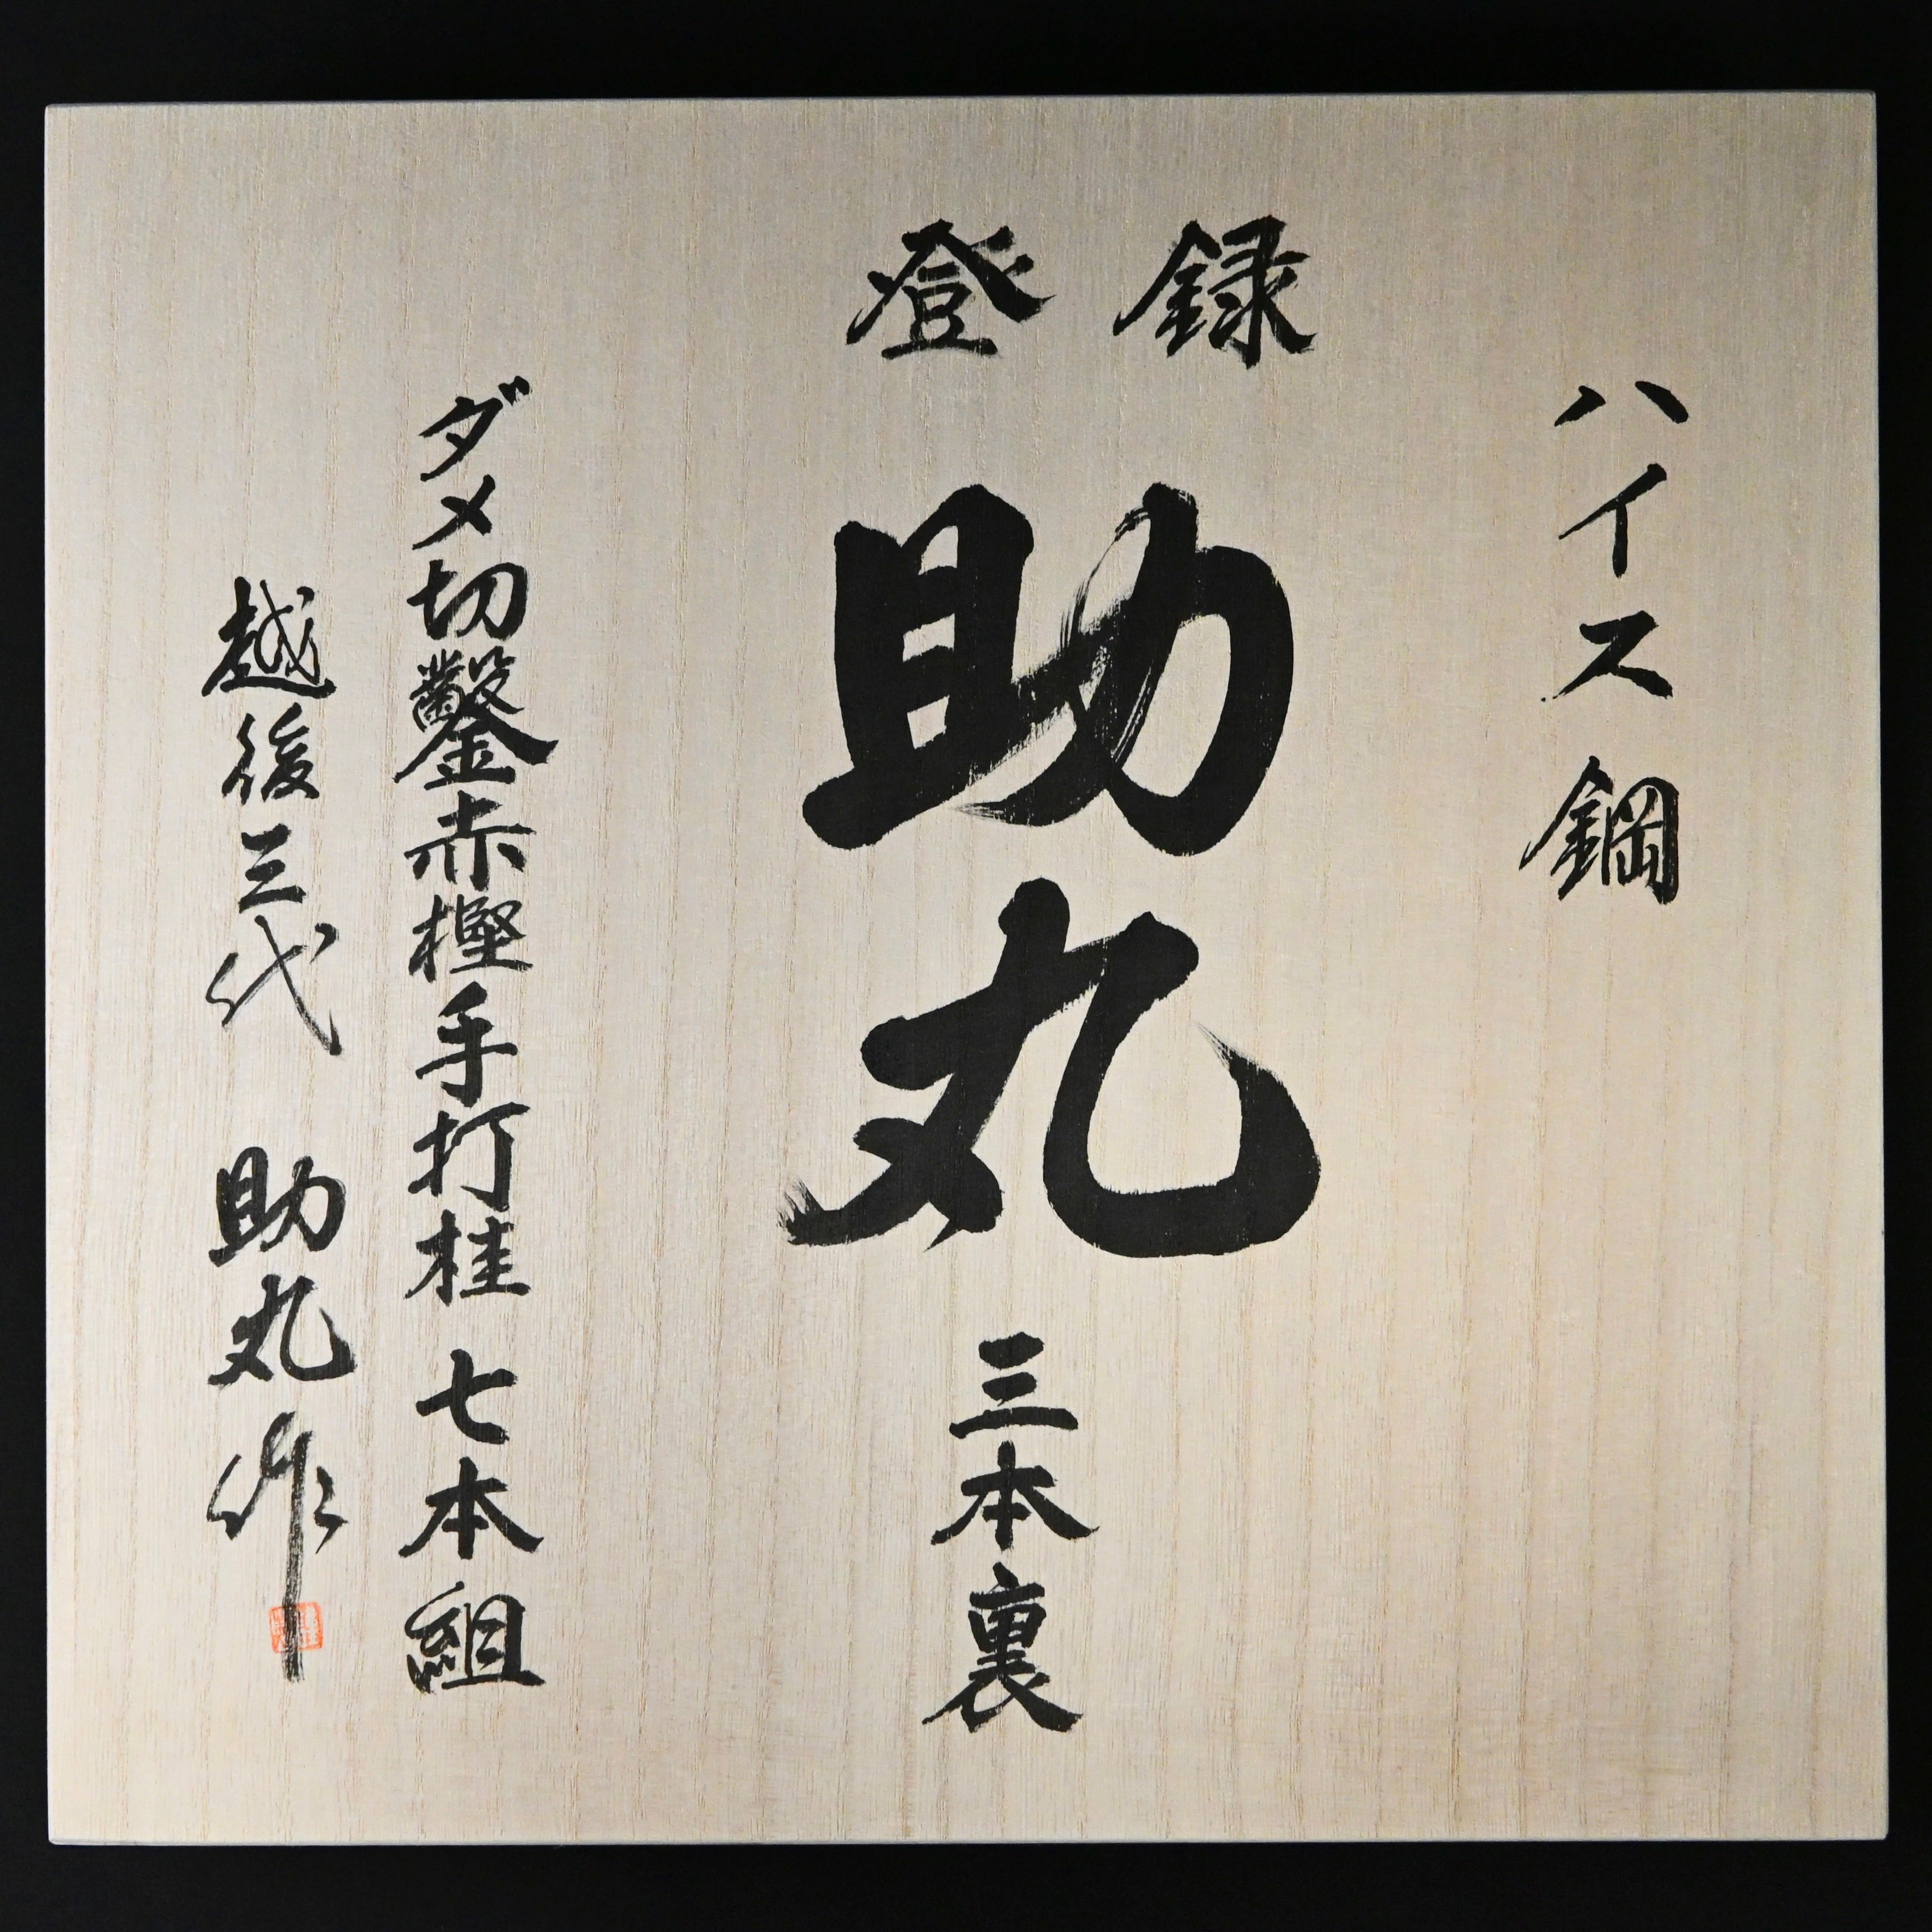 ハイス鋼
登録
助丸
三本裏
ダメ切鑿赤樫手打桂 七本組
越後三代 助丸作